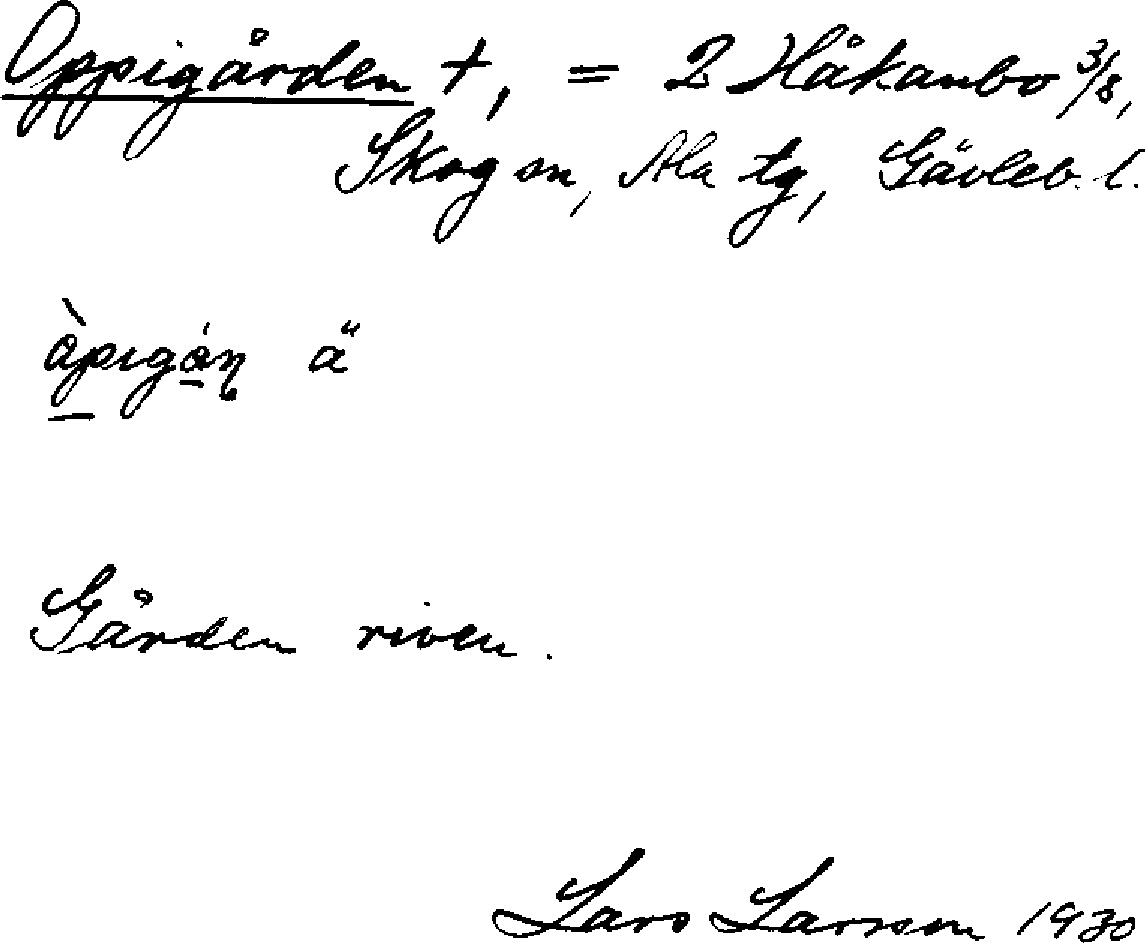 Oppigården †, = 2 Håkanbo 3/8,
Skog sn, Ala tg, Gävleb. l.
å̀pigán ä
Gården riven.
Lars Larsson 1930